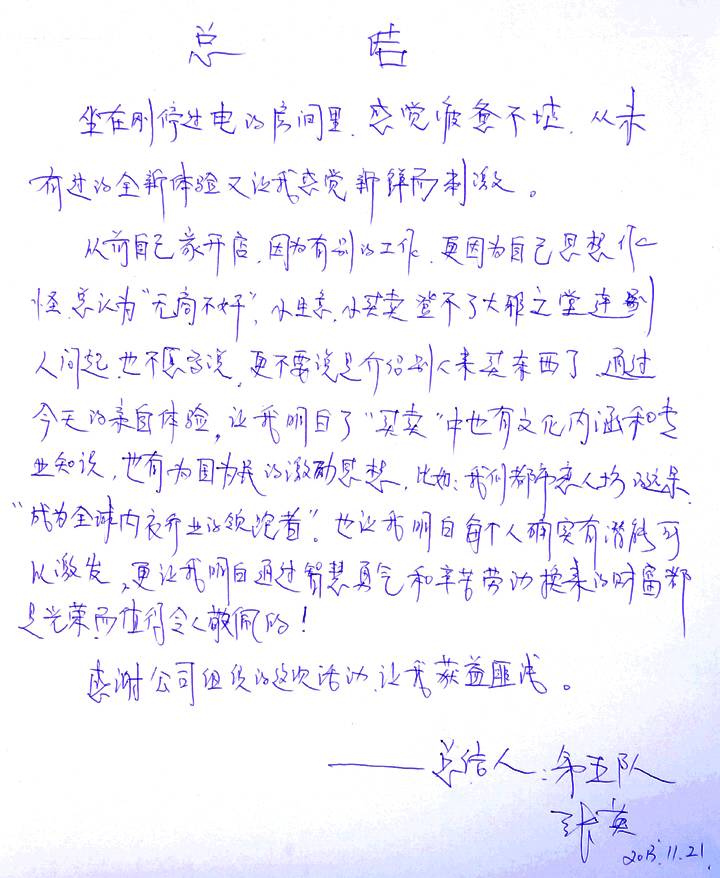 总 结
坐在刚停过电的房间里，感觉疲惫不堪，从未
有过的全新体验又让我感觉新鲜而刺激。
从前自己家开店，因为有别的工作，更因为自己思想作
怪，总认为“无商不奸”，小生意，小买卖登不了大雅之堂，连别
人问起，也不愿言说，更不要说是介绍别人来买东西了，通过
今天的亲自体验，让我明白了“买卖”中也有文化内涵和专
业知识，也有为国为民的激励思想，比如：我们都市恋人
“成为全球内衣行业的领跑者”。也让我明白每个人确实有潜能可
以激发，更让我明白通过智慧勇气和辛苦劳动换来的财富都
是光荣而值得令人敬佩的！
感谢公司组织的这次活动，让我获益匪浅。
——总结人：第五队
张英
2013.11.21